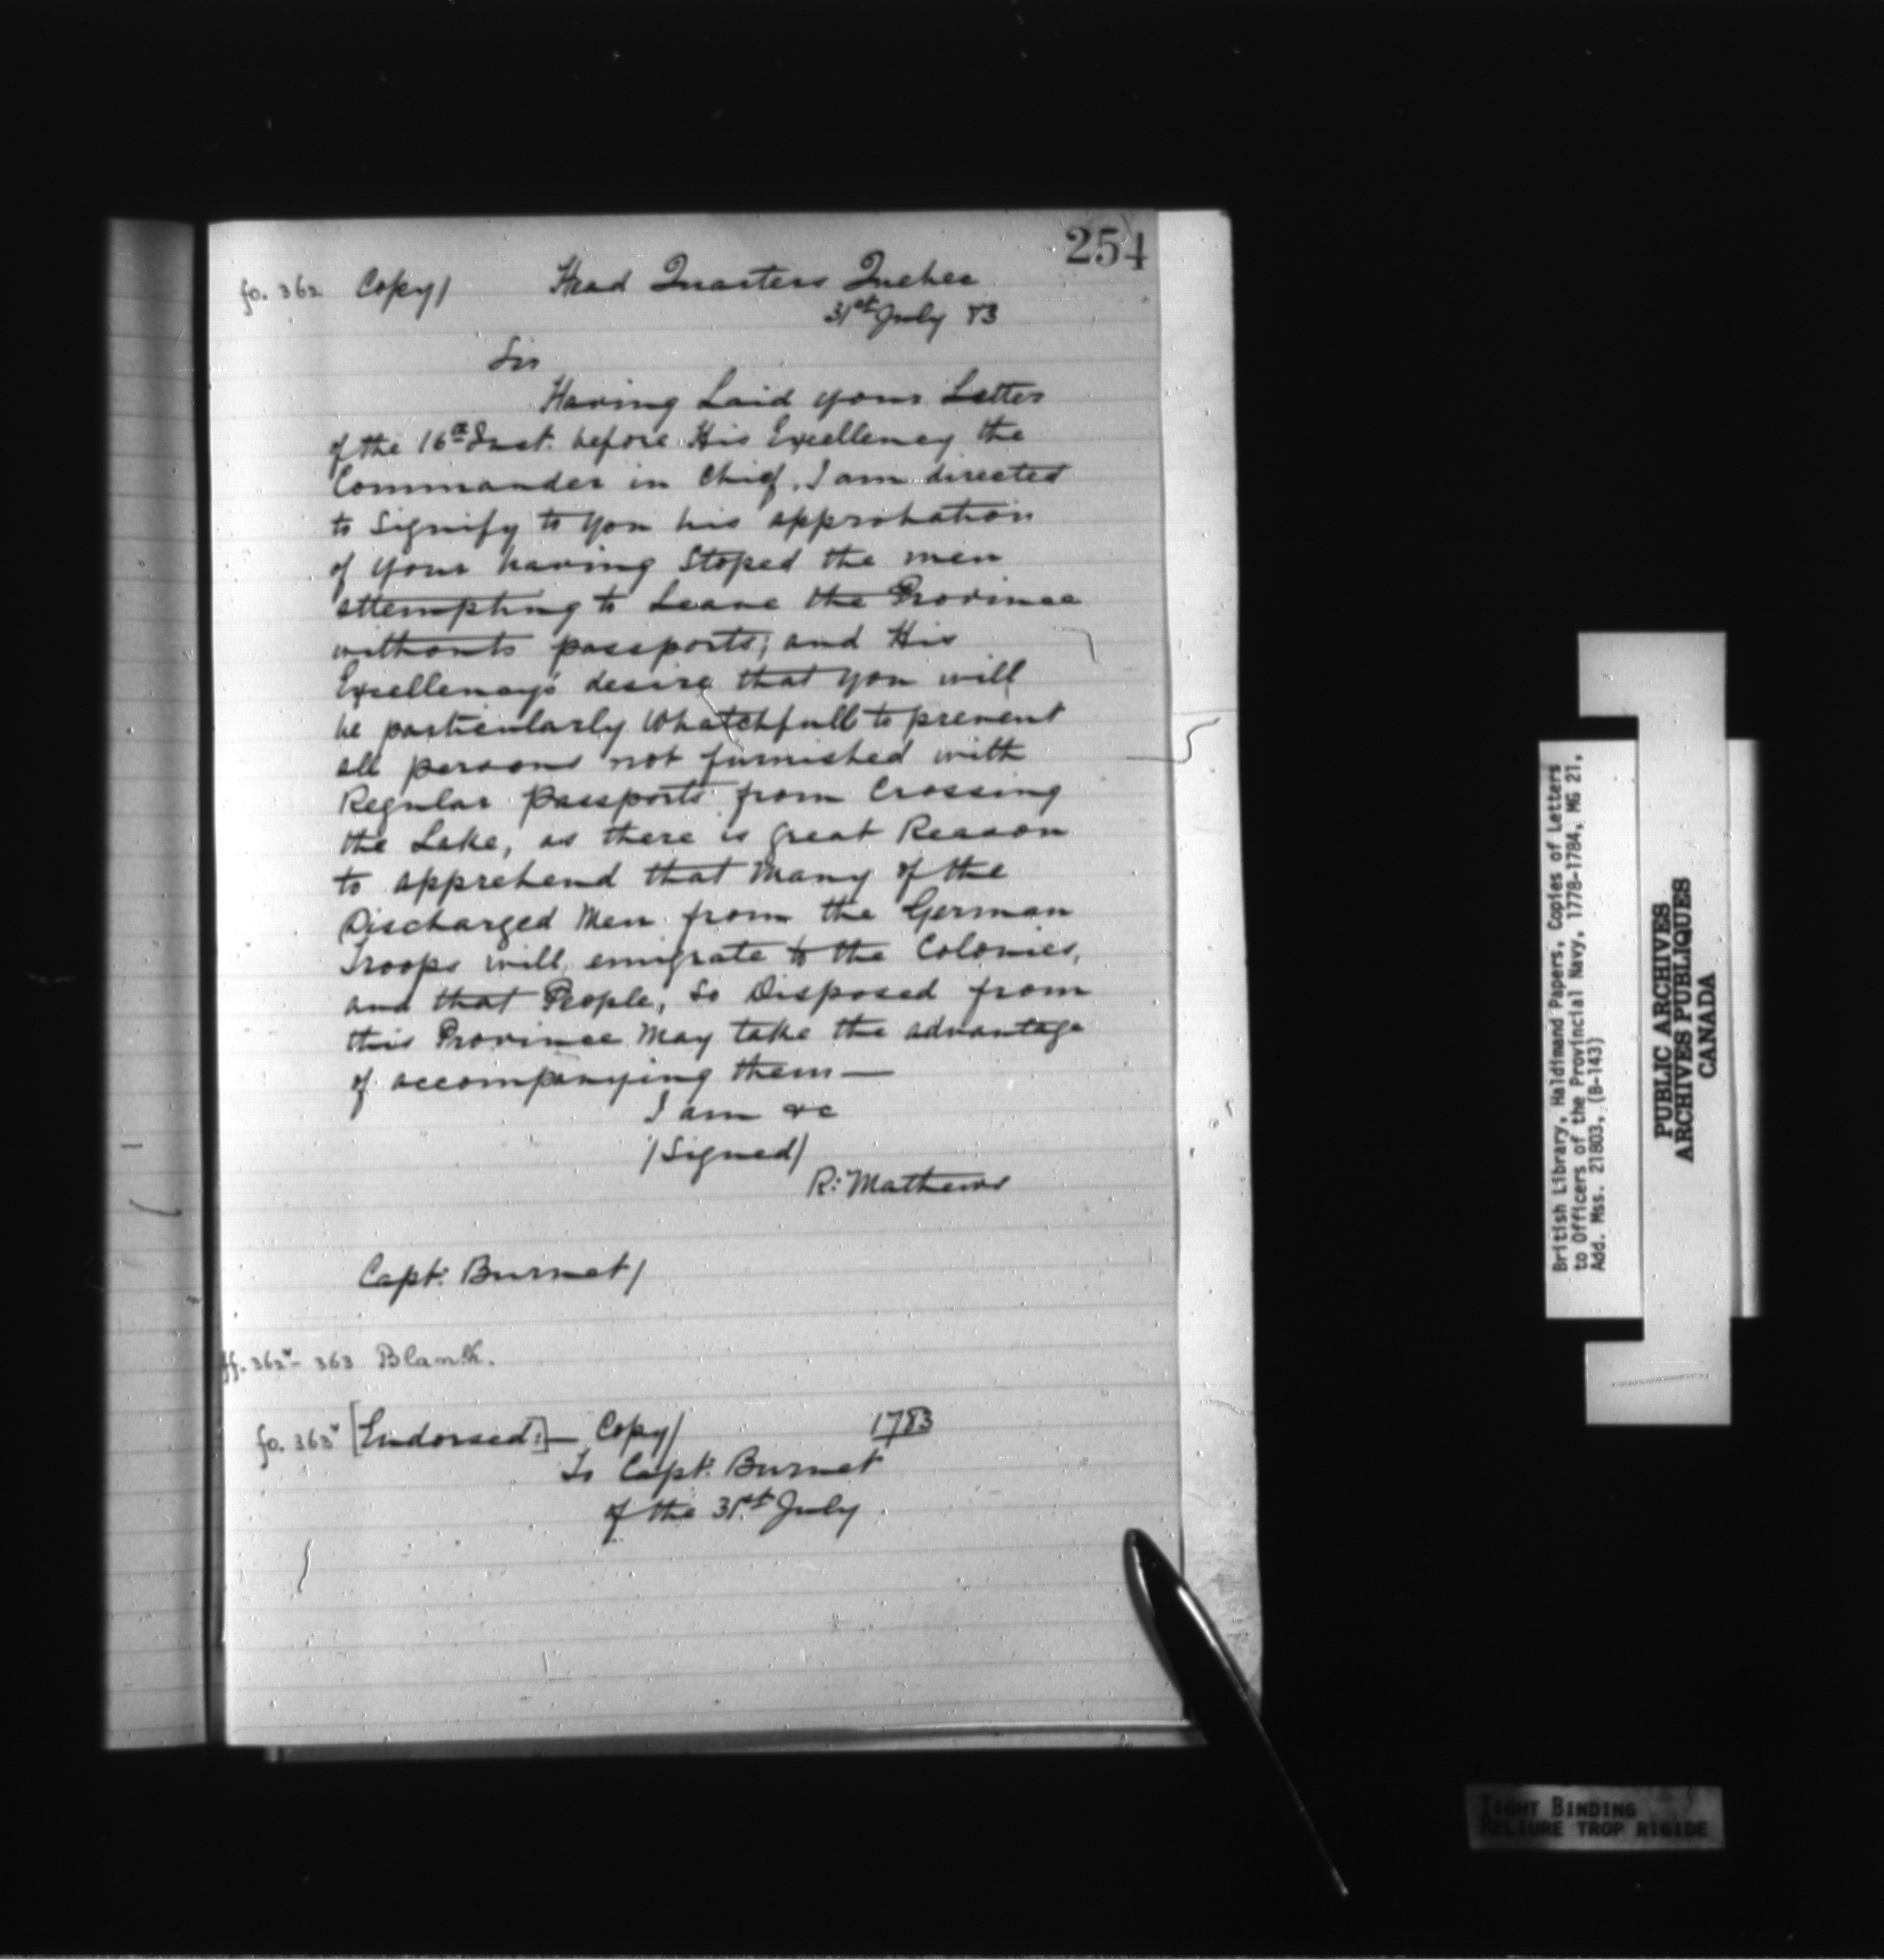 254
fo. 362 Copy/ Head Quarters Quebec
31st July 83
Sir
Having Laid your Letter
of the 16th Inst. before His Excellency the
Commander in Chief, I am directed
to Signify to you his approbation
of your having Stoped the men
attempting to Leave the Province
withouts passports; and His
Excellency's desire that you will
be particularly Whatchfull to prevent
all persons not furnished with
Regular Passports from Crossing
the Lake, as there is great Reason
to apprehend that Many of the
Discharged Men from the German
Troops will emigrate to the Colonies,
and that People, So Disposed from
this Province May take the advantage
of accompanying them—
I am &c
/Signed/
R: Mathews
Capt. Burnet/
ff. 362v- 363 Blank.
fo. 363v [Endorsed:]— Copy/ 1783
To Capt. Burnet
of the 31st July
British Library, Haldimand Papers, Copies of Letters
to Officers of the Provincial Navy, 1778-1784, MG 21,
Add. Mss. 21803, (B-143)
PUBLIC ARCHIVES
ARCHIVES PUBLIQUES
CANADA
TIGHT BINDING
RELIURE TROP RIGIDE